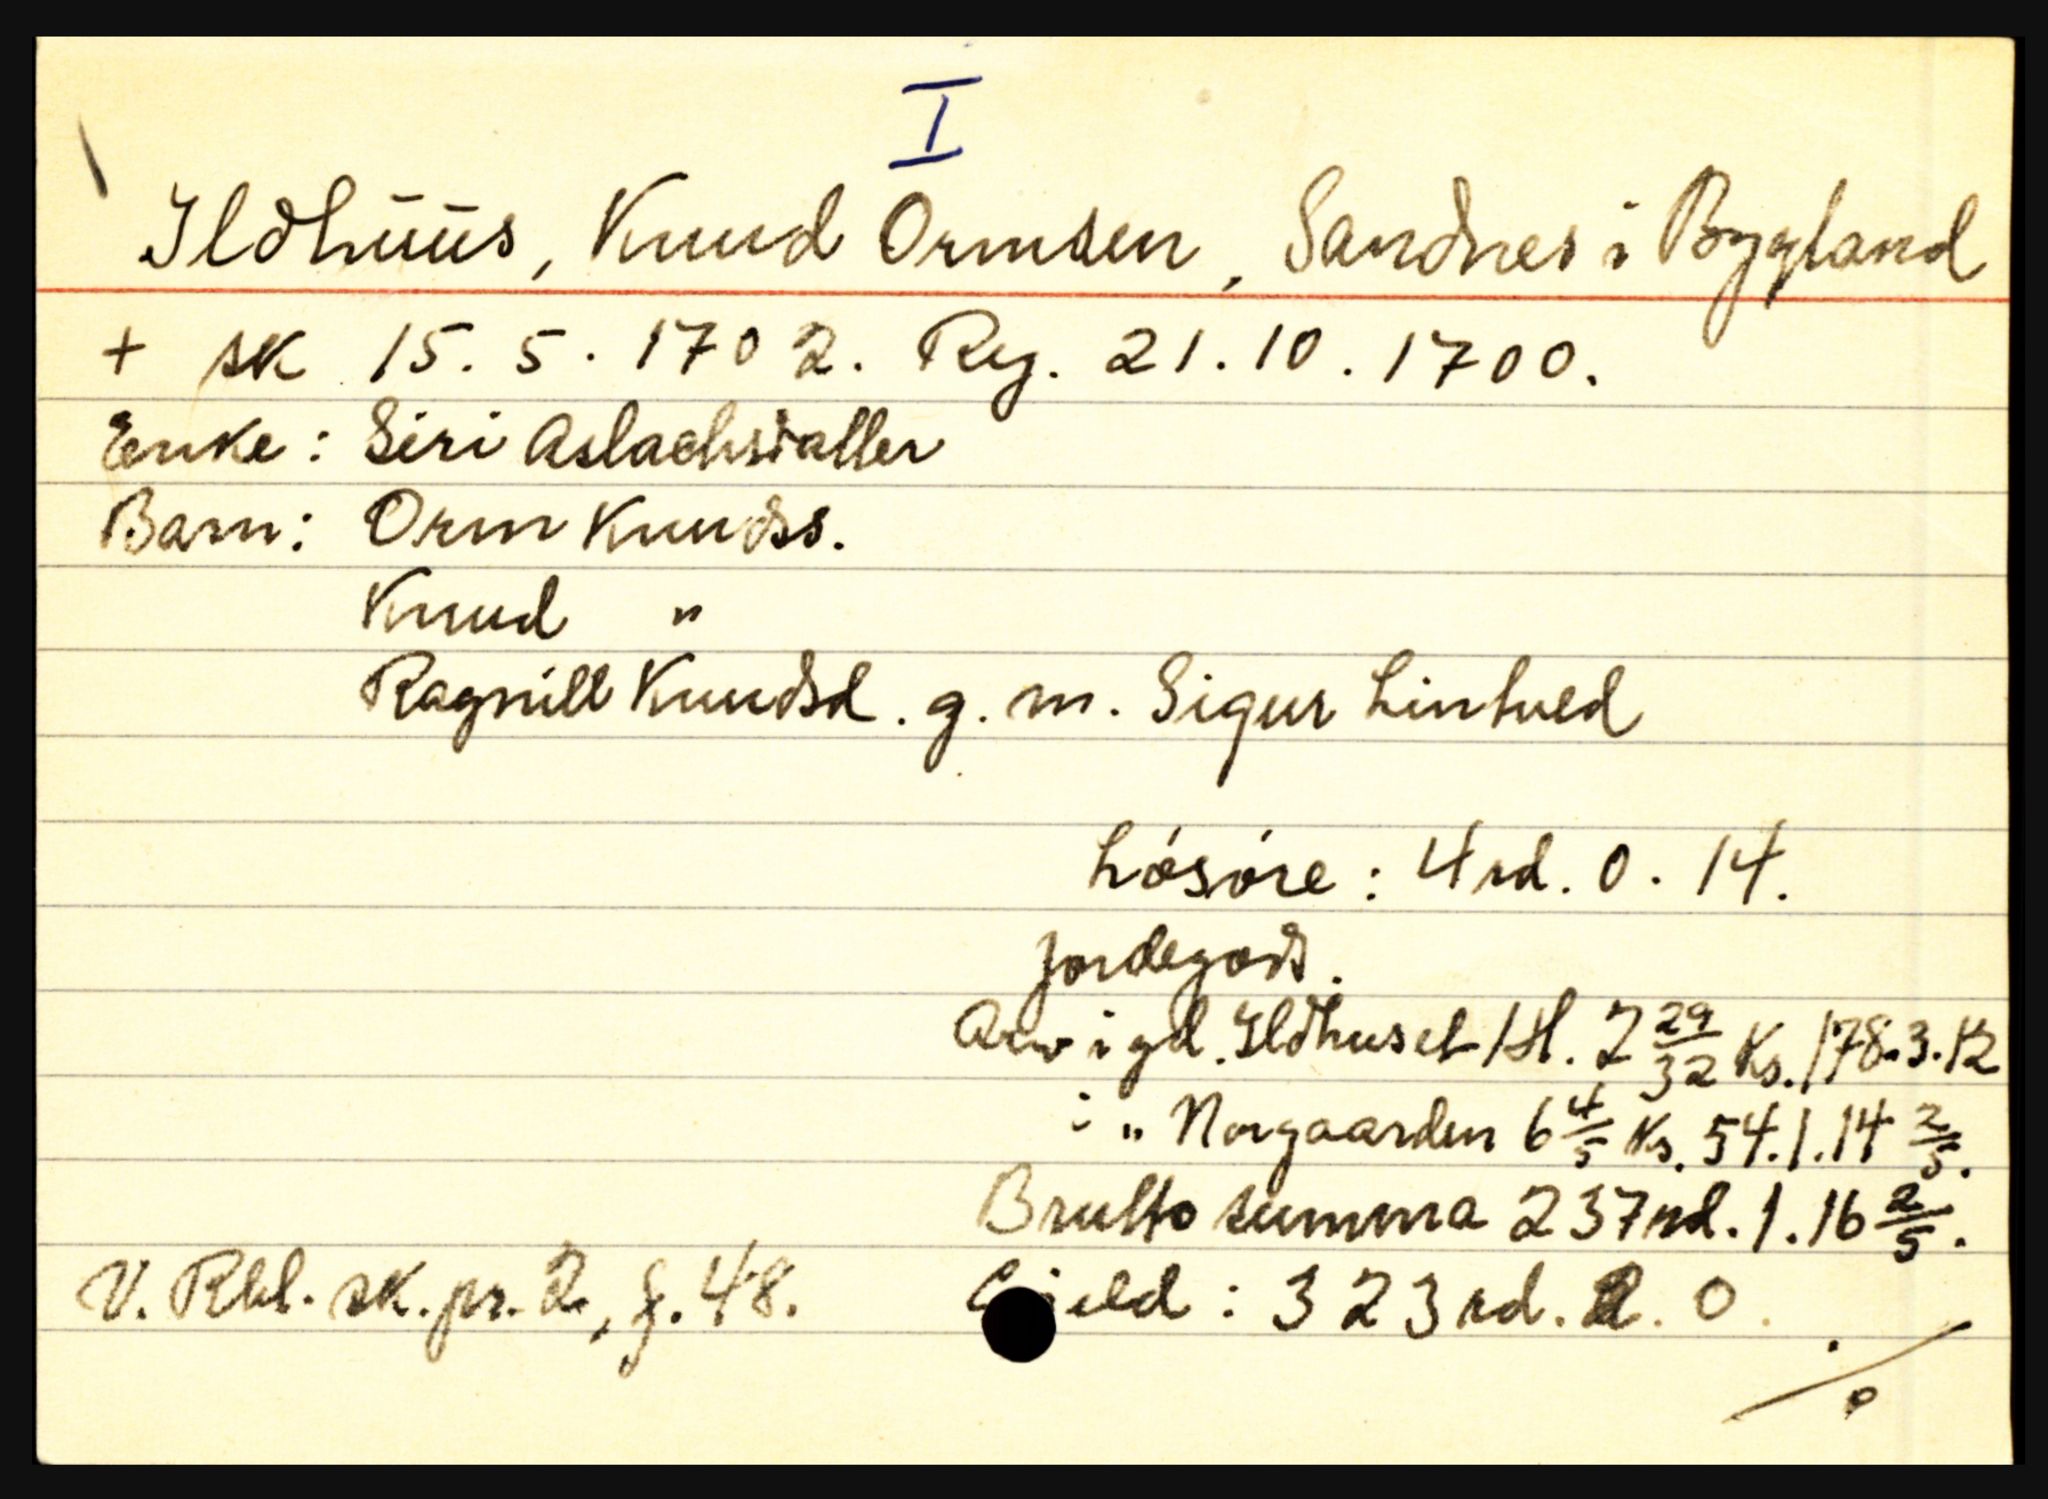 I
Ildhüüs, Knud Ormsen, Sandnes i Bygland
+ sk 15. 5. 1702. Reg. 21. 10. 1700.
Enke: Siri Aslachsdatter
Barn: Orm Knudss.
Knud "
Ragnill Knudsd. g. m. Sigur Lintved
Lósóre: 4 rd. 0. 14.
Jordegods.
Arv i gd. Ildhuset 1 H. 2 29/32 Ks. 178.3.12
i " Norgaarden 6 4/5 Ks. 54.1.14 2/5.
Brutto summa 237 rd. 1. 16 2/5.
V. Rbl. sk. pr. 2, f. 48.
Gjeld: 323 rd. 2. 0.